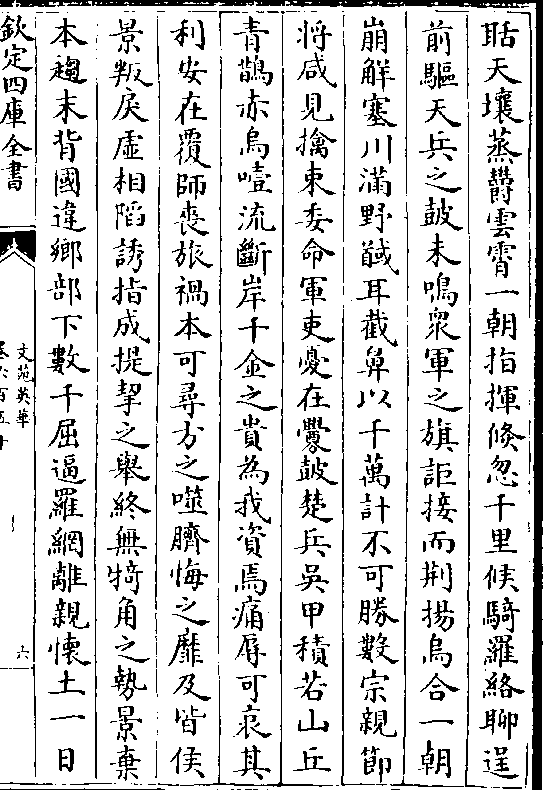 聒天壤蒸欝雲霄一朝指揮倐忽千里候騎羅絡聊逞
前驅天兵之皷未鳴衆軍之旗詎接而荆揚烏合一朝
崩解塞川滿野馘耳截鼻以千萬計不可勝數宗親節
將咸見擒束委命軍吏憂在釁皷楚兵吳甲積若山丘
青鶄赤烏噎流斷岸千金之貴為我資焉痛辱可哀其
利安在覆師喪旅禍本可尋方之噬臍悔之靡及皆侯
景叛戾虛相陷誘指成提挈之舉終無犄角之勢景棄
本趨末背國違鄉部下數千屈逼羅網離親懷土一日
欽定四庫全書
文苑英華
卷六百五十
六